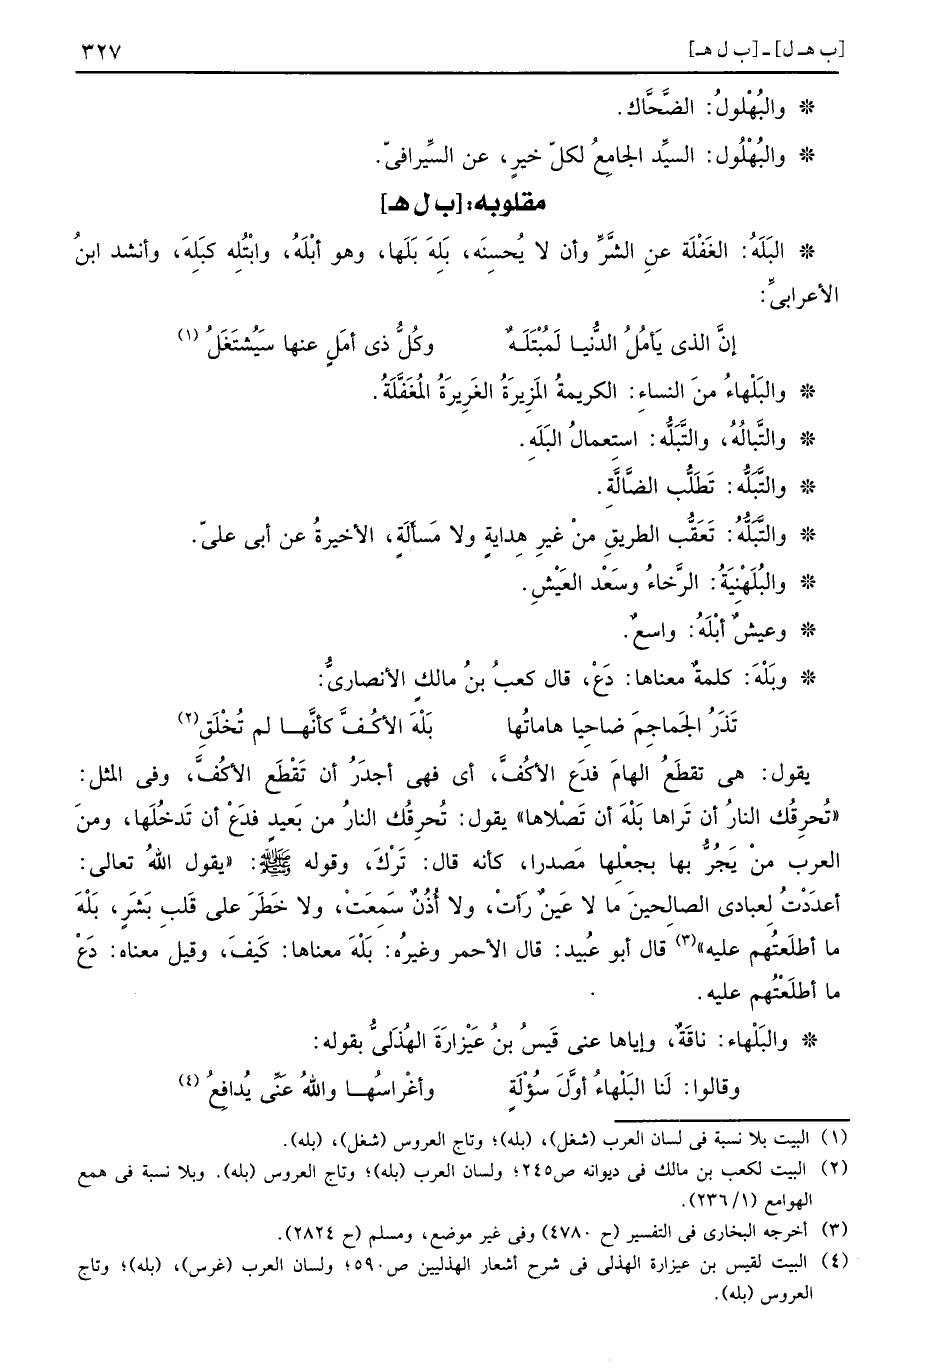 [ب هـ ل] ـ [ب ل هـ] ٣٢٧
* والبُهْلولُ: الضَّحَّاك.
* والبُهْلُول: السيِّد الجامعُ لكلّ خيرٍ، عن السِّيرافىّ.
مقلوبه: [ب ل هـ]
* البَلَهُ: الغَفْلَة عنِ الشَّرِّ وأن لا يُحسِنَه، بَلِهَ بَلَها، وهو أبْلَهُ، وابْتُلِه كبَلِهَ، وأنشد ابنُ
الأعرابىِّ:
إنَّ الذى يَأمُلُ الدُّنيـا لَمُبْتَلَـهٌ وكُلُّ ذى أمَلٍ عنها سَيُشتَغَلُ (١)
* والبَلْهاءُ منَ النساءِ: الكريمةُ المَزِيرَةُ الغَرِيرَةُ المُغَفَّلَةُ.
* والتَّبالُهُ، والتَّبَلُّه: استعمالُ البَلَهِ.
* والتَّبَلُّه: تَطَلُّب الضَّالَّةِ.
* والتَّبَلُّهُ: تَعَقُّب الطريقِ منْ غيرِ هِدايةٍ ولا مَسألَةٍ، الأخيرةُ عن أبى علىّ.
* والبُلَهْنِيَةُ: الرَّخاءُ وسَعْد العَيْشِ.
* وعيشٌ أبْلَهُ: واسعٌ.
* وبَلْهَ: كلمةٌ معناها: دَعْ، قال كعبُ بنُ مالكٍ الأنصارىُّ:
تَذَرُ الجَماجِمَ ضاحِيا هاماتُها بَلْهَ الأكُـفَّ كأنَّهـا لم تُخْلَقِ(٢)
يقول: هى تقطَعُ الهامَ فدَعِ الأكُفَّ، أى فهى أجدَرُ أن تَقْطَع الأكُفَّ، وفى المثل:
«تُحرِقُك النارُ أن تَراها بَلْهَ أن تَصْلاها» يقول: تُحرِقُك النارُ من بَعيدٍ فدَعْ أن تَدخُلَها، ومنَ
العرب مَنْ يَجُرُّ بها بجعْلِها مَصدرا، كأنه قال: تَرْكَ، وقوله ﷺ: «يقول اللهُ تعالى:
أعدَدْتُ لعبادى الصالحينَ ما لا عَينٌ رَأتْ، ولا أُذُنٌ سَمِعَتْ، ولا خَطَرَ على قَلبِ بَشَرٍ، بَلْهَ
ما أطلَعتُهم عليه»(٣) قال أبو عُبيد: قال الأحمر وغيرهُ: بَلْهَ معناها: كَيفَ، وقيل معناه: دَعْ
ما أطلَعْتُهم عليه.
* والبَلْهاء: ناقَةٌ، وإياها عنى قَيسُ بنُ عَيْزارَةَ الهُذَلىُّ بقوله:
وقالوا: لَنا البَلْهاءُ أوَّلَ سُؤْلَةٍ وأغْراسُهـا واللهُ عَنِّى يُدافِعُ (٤)
(١) البيت بلا نسبة فى لسان العرب (شغل)، (بله)؛ وتاج العروس (شغل)، (بله).
(٢) البيت لكعب بن مالك فى ديوانه ص٢٤٥؛ ولسان العرب (بله)؛ وتاج العروس (بله). وبلا نسبة فى همع
الهوامع (١/ ٢٣٦).
(٣) أخرجه البخارى فى التفسير (ح ٤٧٨٠) وفى غير موضع، ومسلم (ح ٢٨٢٤).
(٤) البيت لقيس بن عيزارة الهذلى فى شرح أشعار الهذليين ص٥٩٠؛ ولسان العرب (غرس)، (بله)؛ وتاج
العروس (بله).